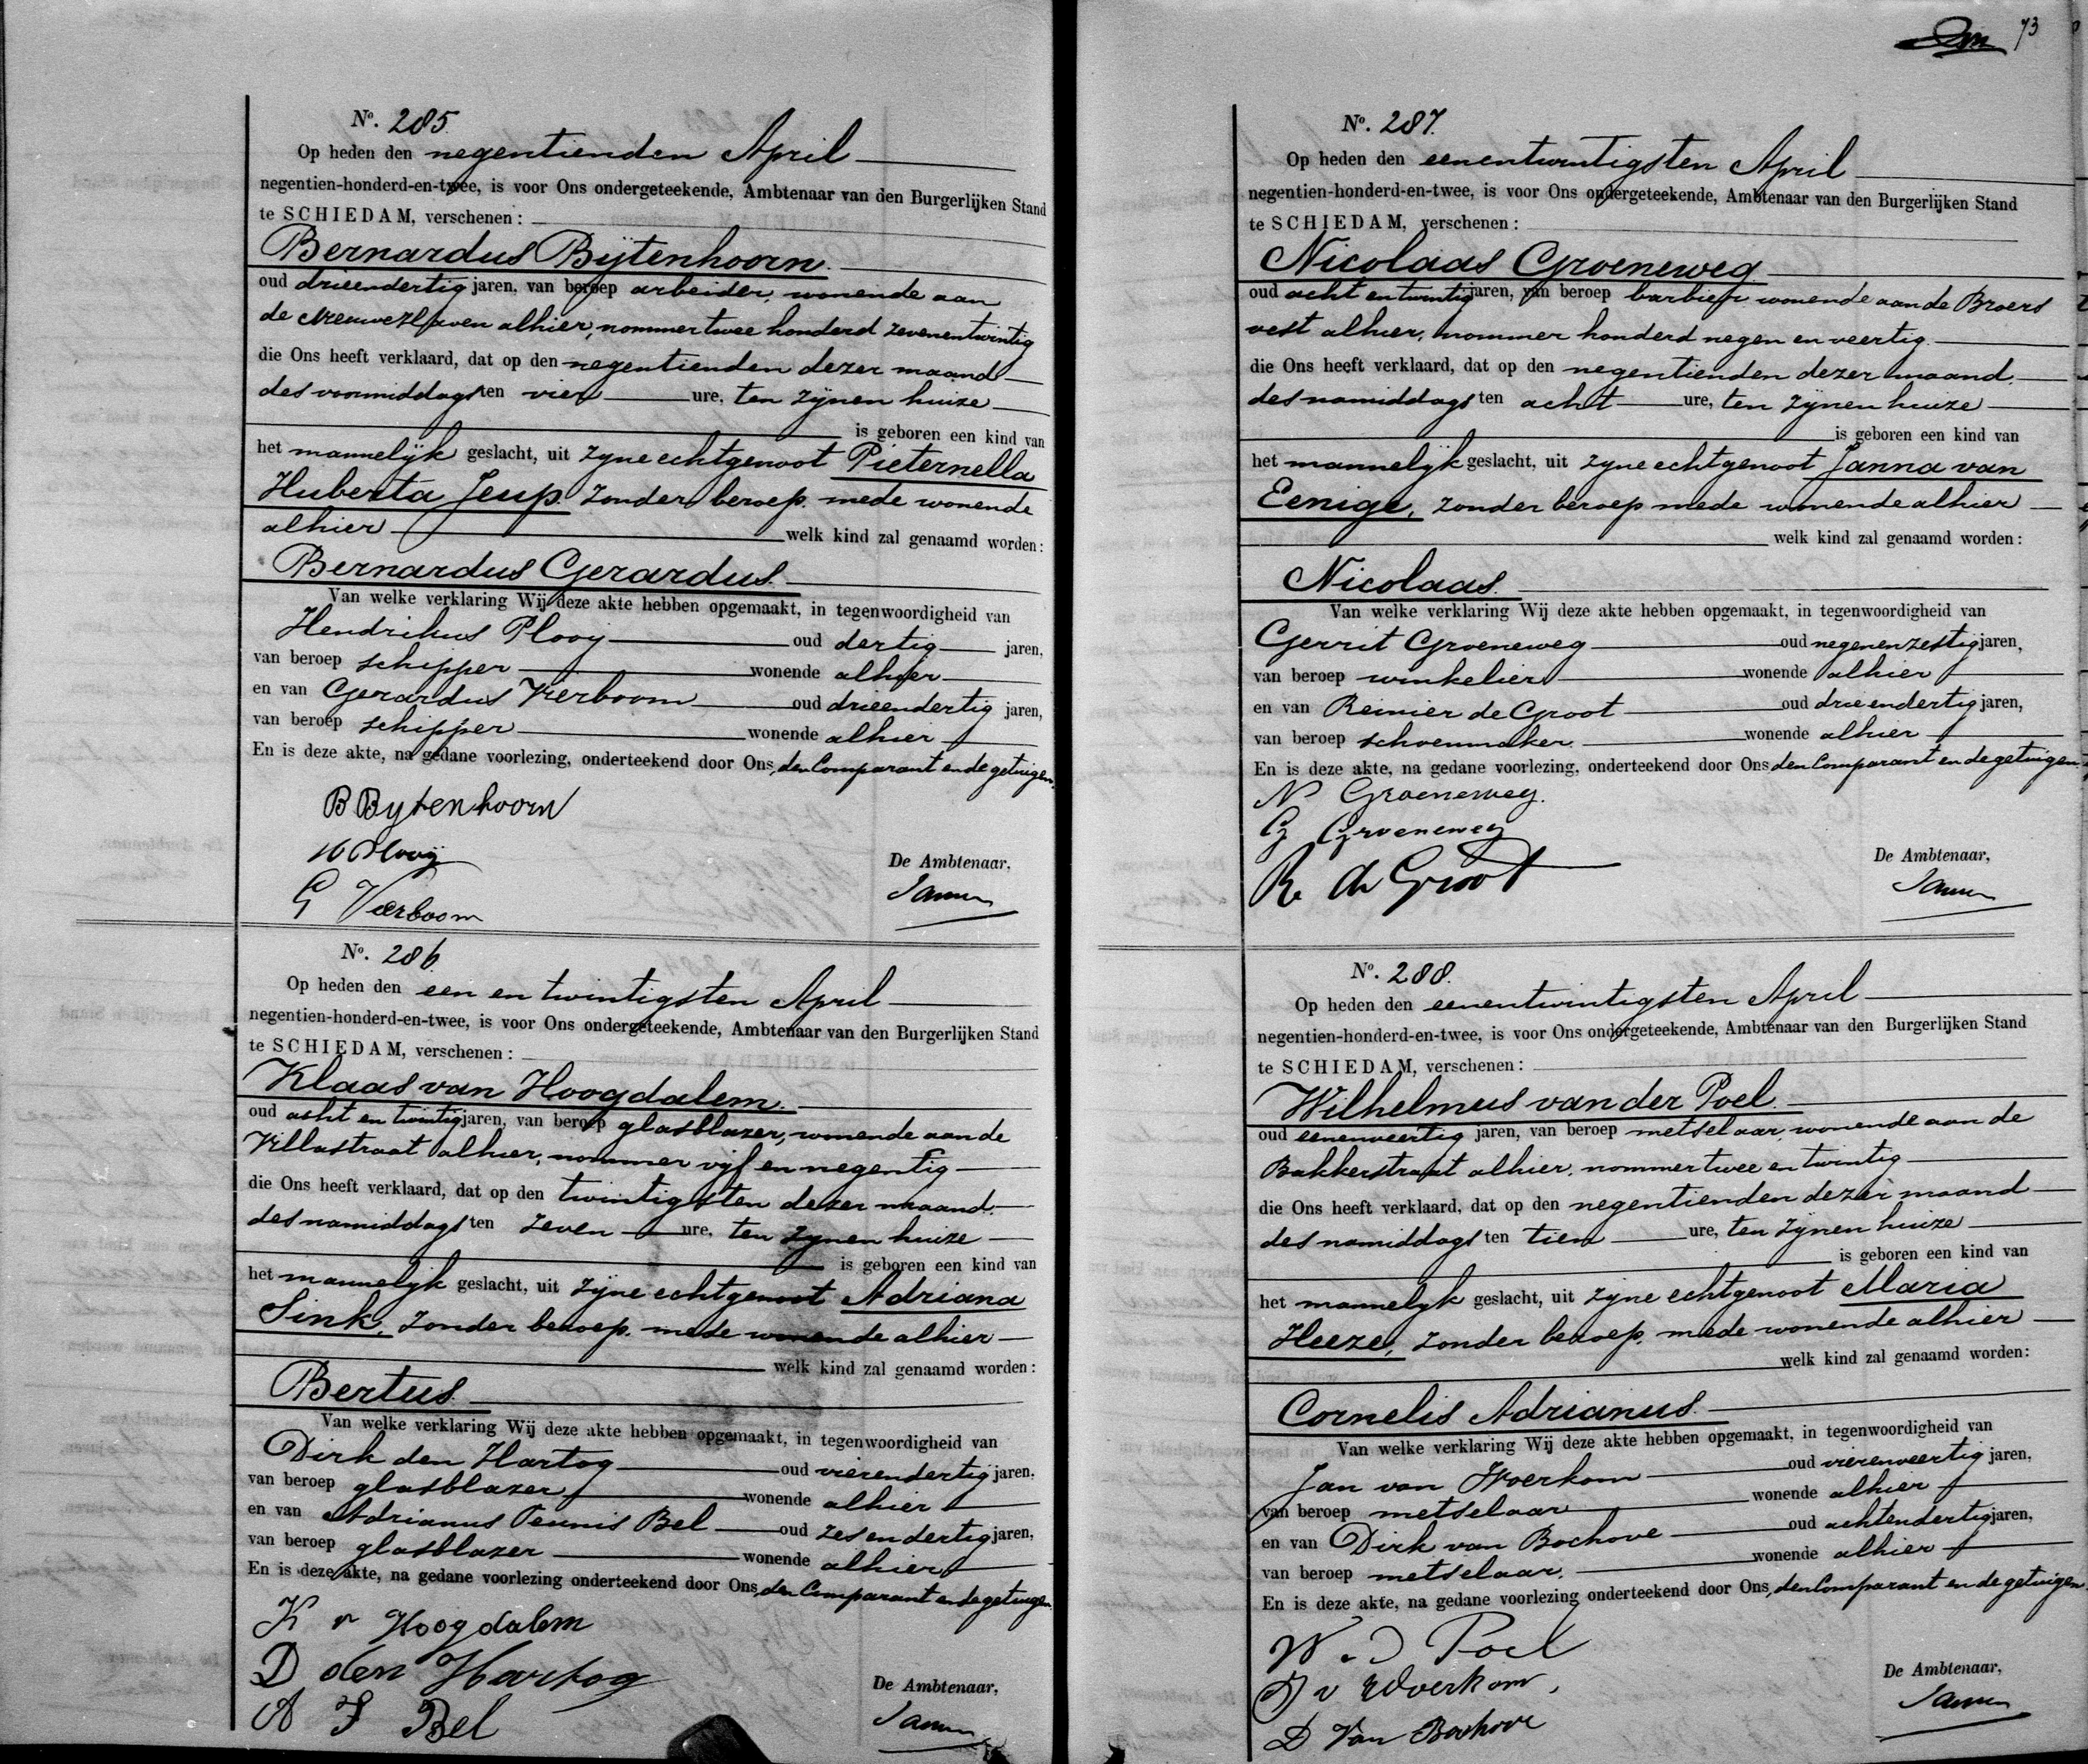 No. 285.
Op heden den negentienden April
negentien-honderd-en-twee, is voor Ons ondergeteekende, Ambtenaar van den Burgerlijken Stand
te SCHIEDAM, verschenen:
Bernardus Bijtenhoorn.
oud drieendertig jaren, van beroep arbeider, wonende aan
de Nieuwe Haven alhier, nommer twee honderd zevenentwintig
die Ons heeft verklaard, dat op den negentienden dezer maand
des voormiddags ten vier ure, ten zijnen huize
is geboren een kind van
het mannelijk geslacht, uit zijne echtgenoot Pieternella
Huberta Jeup. zonder beroep. mede wonende
alhier welk kind zal genaamd worden:
Bernardus Gerardus.
Van welke verklaring Wij deze akte hebben opgemaakt, in tegenwoordigheid van
Hendrikus Plooij oud dertig jaren,
van beroep schipper wonende alhier
en van Gerardus Vierboom oud drieendertig jaren,
van beroep schipper wonende alhier
En is deze akte, na gedane voorlezing, onderteekend door Ons, den Comparant en de getuigen.
B Bytenhoorn
H Plooij
G Vierboom
De Ambtenaar,
No. 286.
Op heden den een en twintigsten April
negentien-honderd-en-twee, is voor Ons ondergeteekende, Ambtenaar van den Burgerlijken Stand
te SCHIEDAM, verschenen:
Klaas van Hoogdalem.
oud acht en twintig jaren, van beroep glasblazer, wonende aan de
Villastraat alhier, nommer vijf en negentig
die Ons heeft verklaard, dat op den twintigsten dezer maand.
des namiddags ten zeven ure, ten zijnen huize
is geboren een kind van
het mannelijk geslacht, uit zijne echtgenoot Adriana
Sink, zonder beroep. mede wonende alhier
welk kind zal genaamd worden:
Bertus.
Van welke verklaring Wij deze akte hebben opgemaakt, in tegenwoordigheid van
Dirk den Hartog oud vierendertig jaren,
van beroep glasblazer wonende alhier
en van Adrianus Teunis Bel oud zesendertig jaren,
van beroep glasblazer wonende alhier
En is deze akte, na gedane voorlezing onderteekend door Ons, den Comparant en de getuigen.
K v Hoogdalem
D den Hartog
A T Bel
De Ambtenaar,
73
No. 287.
Op heden den eenentwintigsten April
negentien-honderd-en-twee, is voor Ons ondergeteekende, Ambtenaar van den Burgerlijken Stand
te SCHIEDAM, verschenen:
Nicolaas Groeneweg
oud acht en twintig jaren, van beroep barbier wonende aan de Broers
vest alhier, nommer honderd negen en veertig.
die Ons heeft verklaard, dat op den negentienden dezer maand.
des namiddags ten acht ure, ten zijnen huize
is geboren een kind van
het mannelijk geslacht, uit zijne echtgenoot Janna van
Eenige, zonder beroep mede wonende alhier
welk kind zal genaamd worden:
Nicolaas.
Van welke verklaring Wij deze akte hebben opgemaakt, in tegenwoordigheid van
Gerrit Groeneweg oud negenenzestig jaren,
van beroep winkelier wonende alhier
en van Reinier de Groot oud drieendertig jaren,
van beroep schoenmaker. wonende alhier
En is deze akte, na gedane voorlezing, onderteekend door Ons den Comparant en de getuigen.
N Groeneweg.
G Groeneweg
R de Groot
De Ambtenaar,
No. 288.
Op heden den eenentwintigsten April
negentien-honderd-en-twee, is voor Ons ondergeteekende, Ambtenaar van den Burgerlijken Stand
te SCHIEDAM, verschenen:
Wilhelmus van der Poel.
oud eenenveertig jaren, van beroep metselaar, wonende aan de
Bakkerstraat alhier, nommer twee en twintig
die Ons heeft verklaard, dat op den negentienden dezer maand
des namiddags ten tien ure, ten zijnen huize
is geboren een kind van
het mannelijk geslacht, uit zijne echtgenoot Maria
Heeze, zonder beroep, mede wonende alhier
welk kind zal genaamd worden:
Cornelis Adrianus.
Van welke verklaring Wij deze akte hebben opgemaakt, in tegenwoordigheid van
Jan van Woerkom oud vierenveertig jaren,
van beroep metselaar wonende alhier
en van Dirk van Bochove oud achtendertig jaren,
van beroep metselaar. wonende alhier
En is deze akte, na gedane voorlezing onderteekend door Ons, den Comparant en de getuigen.
W v d Poel
J v Woerkom,
D Van Bochove
De Ambtenaar,